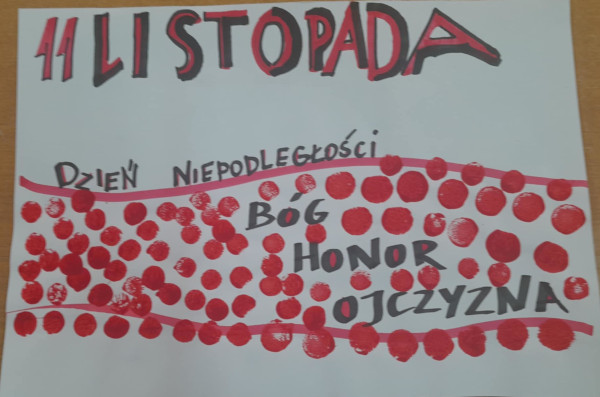 11 LISTOPADA
DZIEŃ NIEPODLEGŁOŚCI
BÓG
HONOR
OJCZYZNA